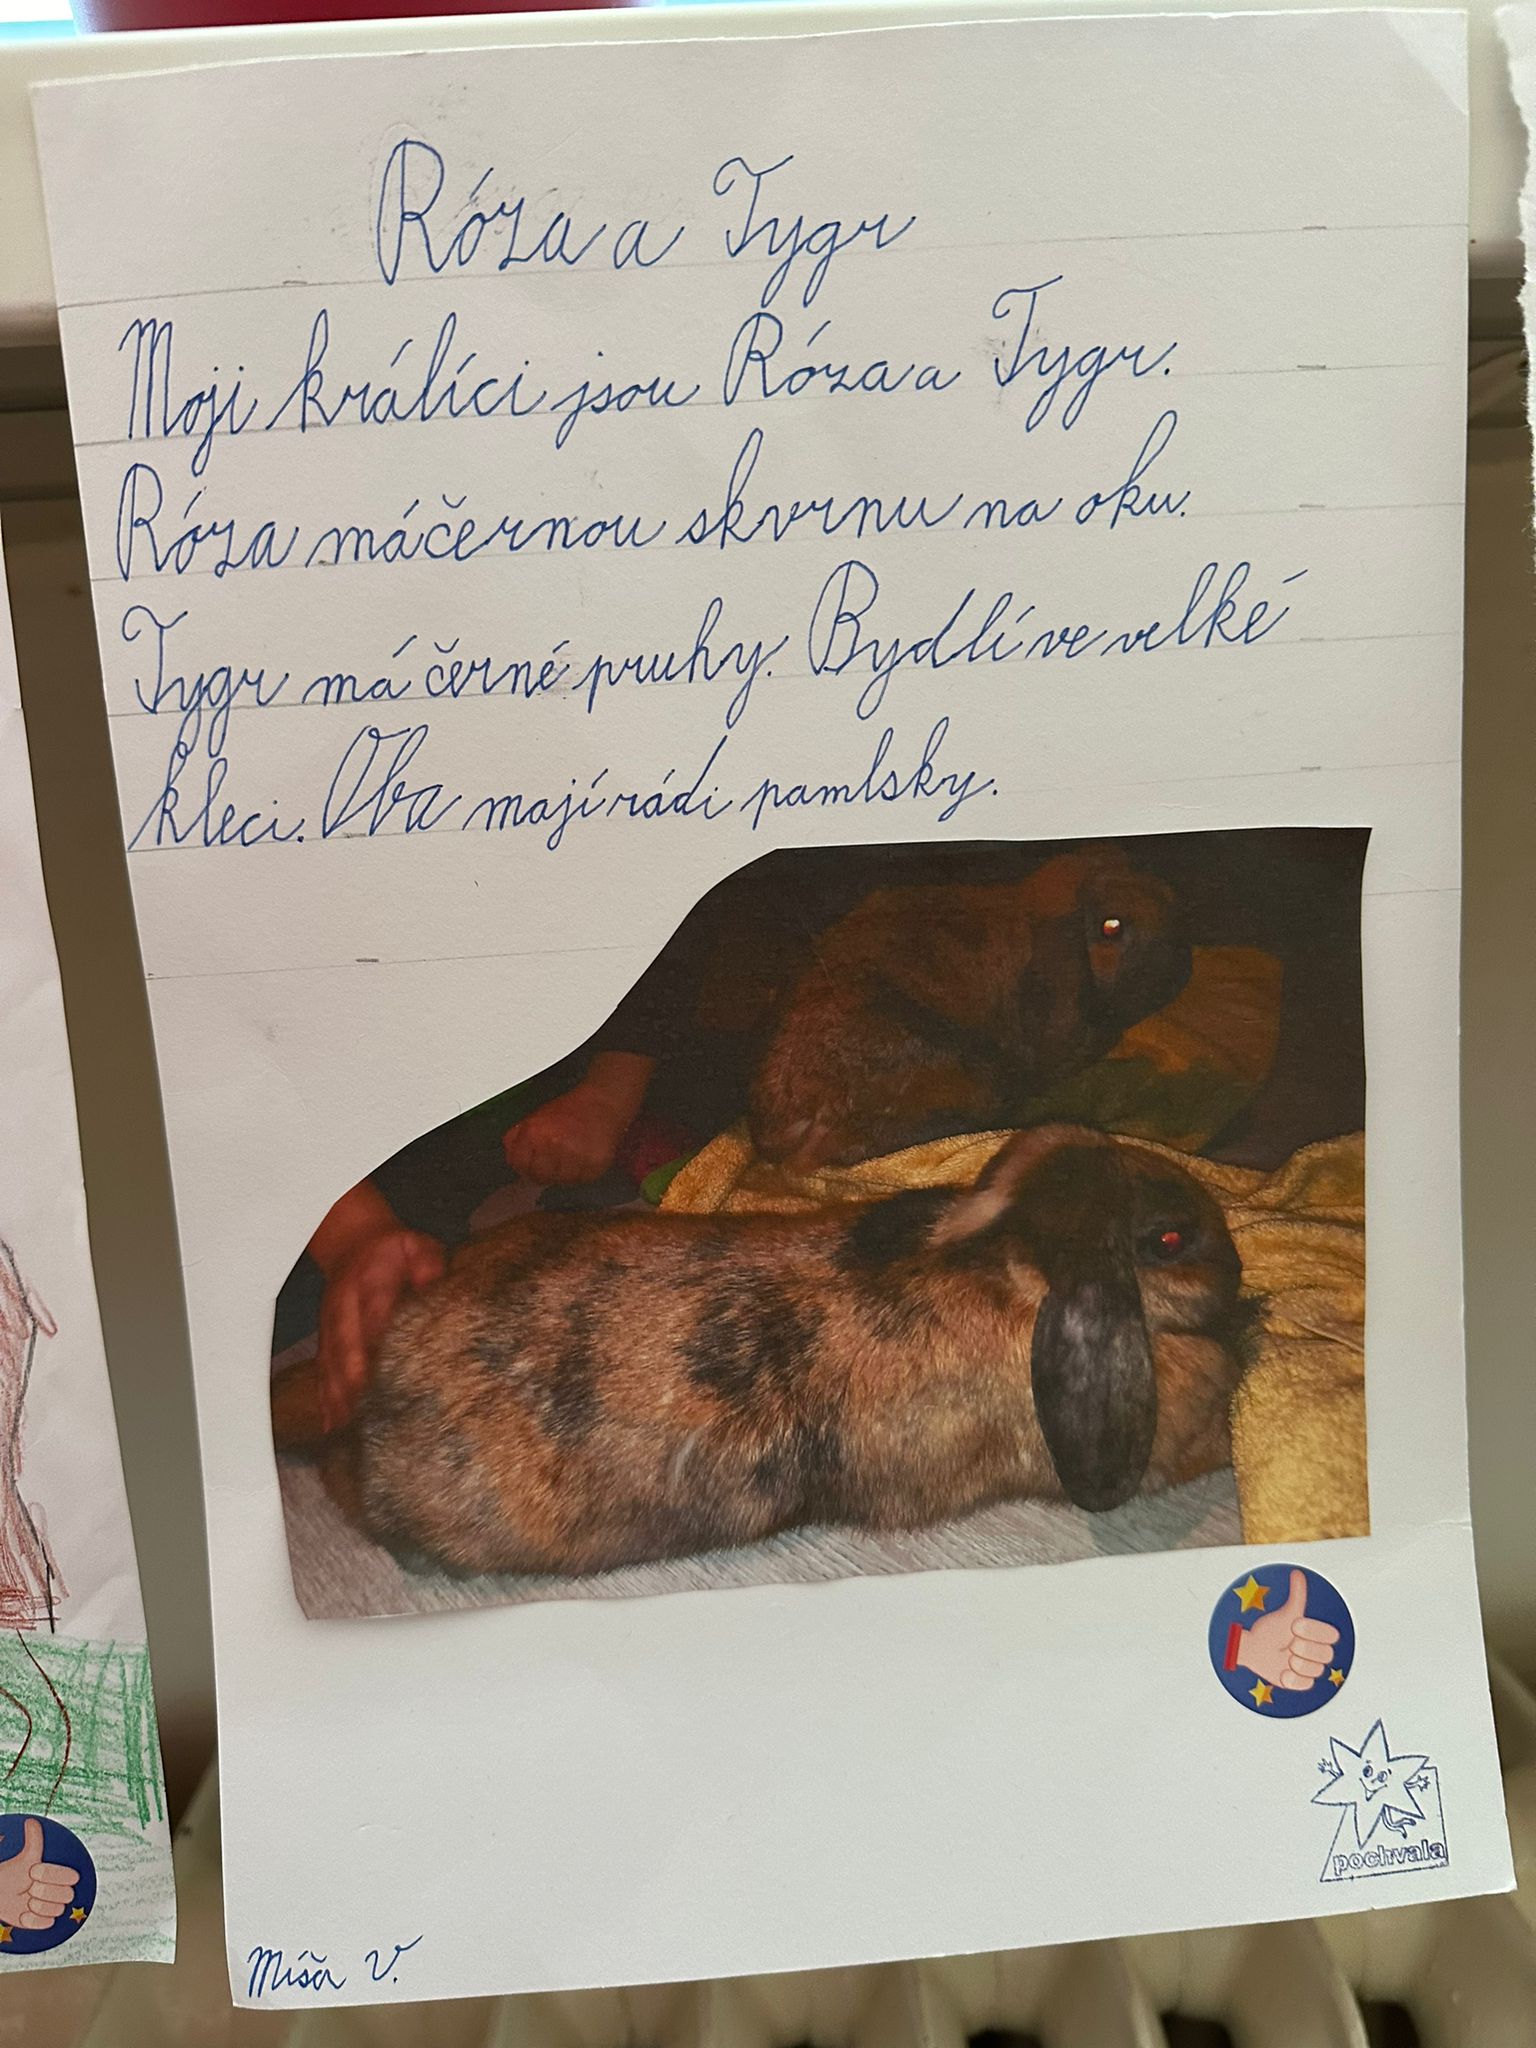 Róza a Tygr
Moji králíci jsou Róza a Tygr.
Róza má černou skvrnu na oku.
Tygr má černé pruhy. Bydlí ve velké
kleci. Oba mají rádi pamlsky.
pochvala
Míša V.